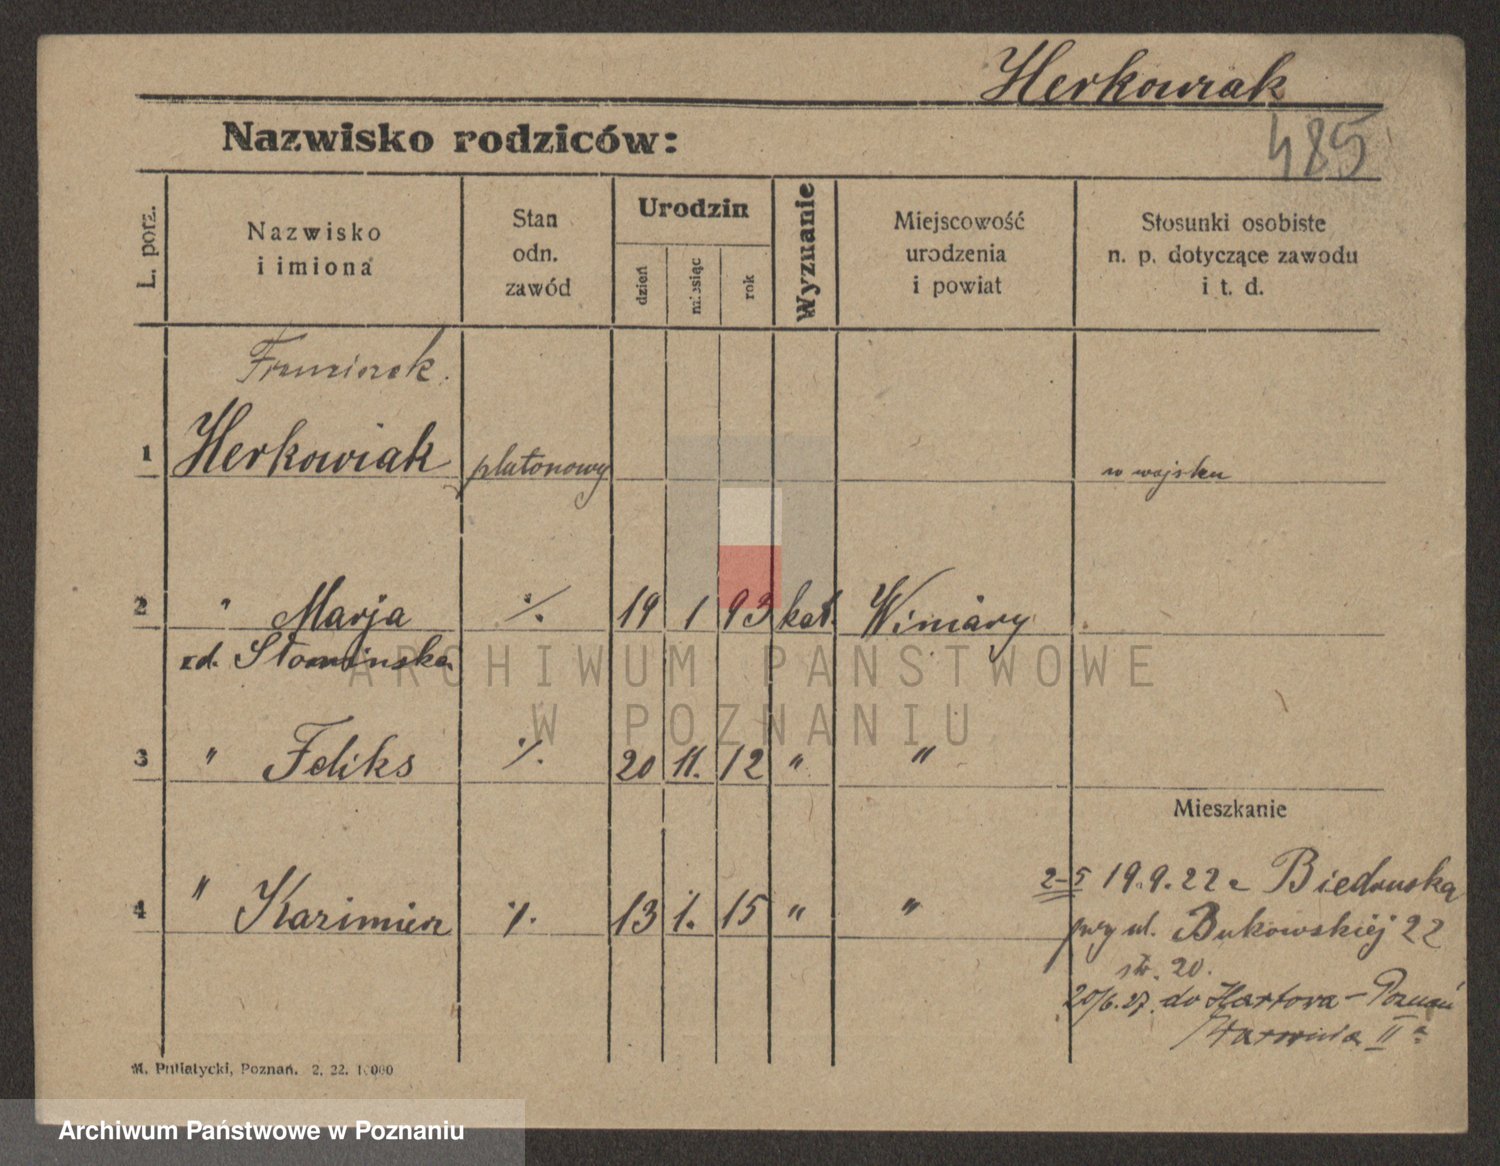 Herkowiak
485
Nazwisko rodziców:
L. porz.
Nazwisko
i imiona
Stan
odn.
zawód
Urodzin
dzień
miesiąc
rok
Wyznanie
Miejscowość
urodzenia
i powiat
Stosunki osobiste
n. p. dotyczące zawodu
i t. d.
1 Herkowiak plutonowy w wojsku
2 " Marja % 19 1 93 kat. Winiary
zd. Słomińska
3 " Feliks %. 20 11. 12 " "
Mieszkanie
4 " Kazimierz %. 13 1. 15 " "
2-5 19.9.22 z Biedruska
przy ul. Bukowskiej 22
str. 20.
20/6.27. do Poznań
II
M. Putiatycki, Poznań. 2. 22. 10000
ARCHIWUM PAŃSTWOWE
W POZNANIU
Archiwum Państwowe w Poznaniu